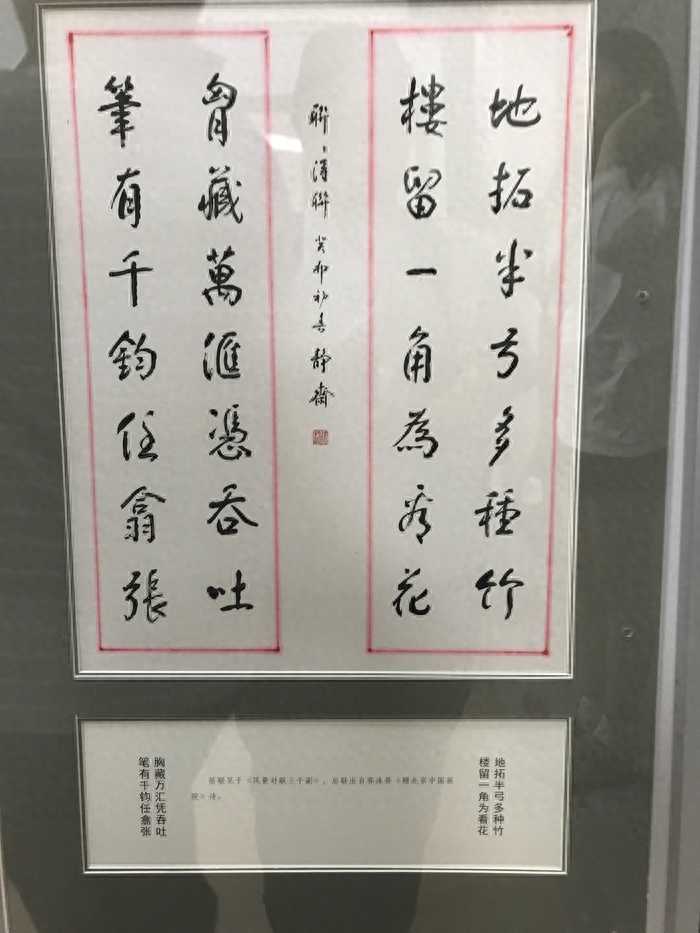 地拓半弓多種竹
楼留一角為看花
癸卯初春 靜齋
胷藏萬滙憑吞吐
筆有千鈞任翕張
地拓半弓多种竹
楼留一角为看花
前联见于《风景对联三千副》，后联出自郭沫若《赠北京中国画
院》诗。
胸藏万汇凭吞吐
笔有千钧任翕张